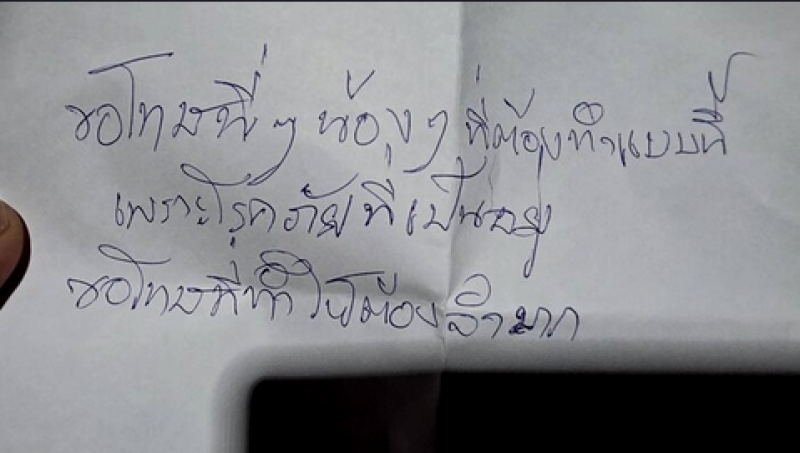 ขอโทษพี่ๆ น้องๆ ที่ต้องทำแบบนี้
เพราะโรคภัยที่เป็นอยู่
ขอโทษที่ทำให้ต้องลำบาก